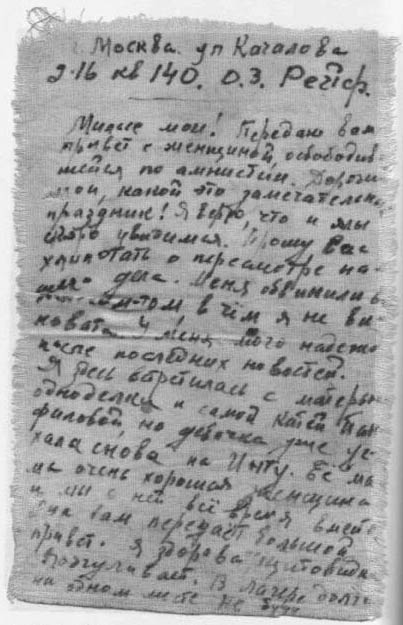 г. Москва. ул Качалова
д.16 кв 140. О.З. Рейф.
Милые мои! Передаю вам
привет с женщиной, освободив-
шейся по амнистии. Дороги
мои, какой это замечательн
праздник! Я верю, что и мы
скоро увидимся. Прошу Вас
хлопотать о пересмотре на-
шего дела. Меня обвинили в
том в чём я не ви-
новата. У меня много надежд
после последних новостей.
Я здесь встретилась с матерью
одноделки и самой Катей Пан
филовой но девочка уже уе-
хала снова на Инту. Её ма
ма очень хорошая женщина
и мы с ней всё время вместе
Она вам передаёт большой
привет. Я здорова щитовидка
пошучивает. В лагере
на одном месте не